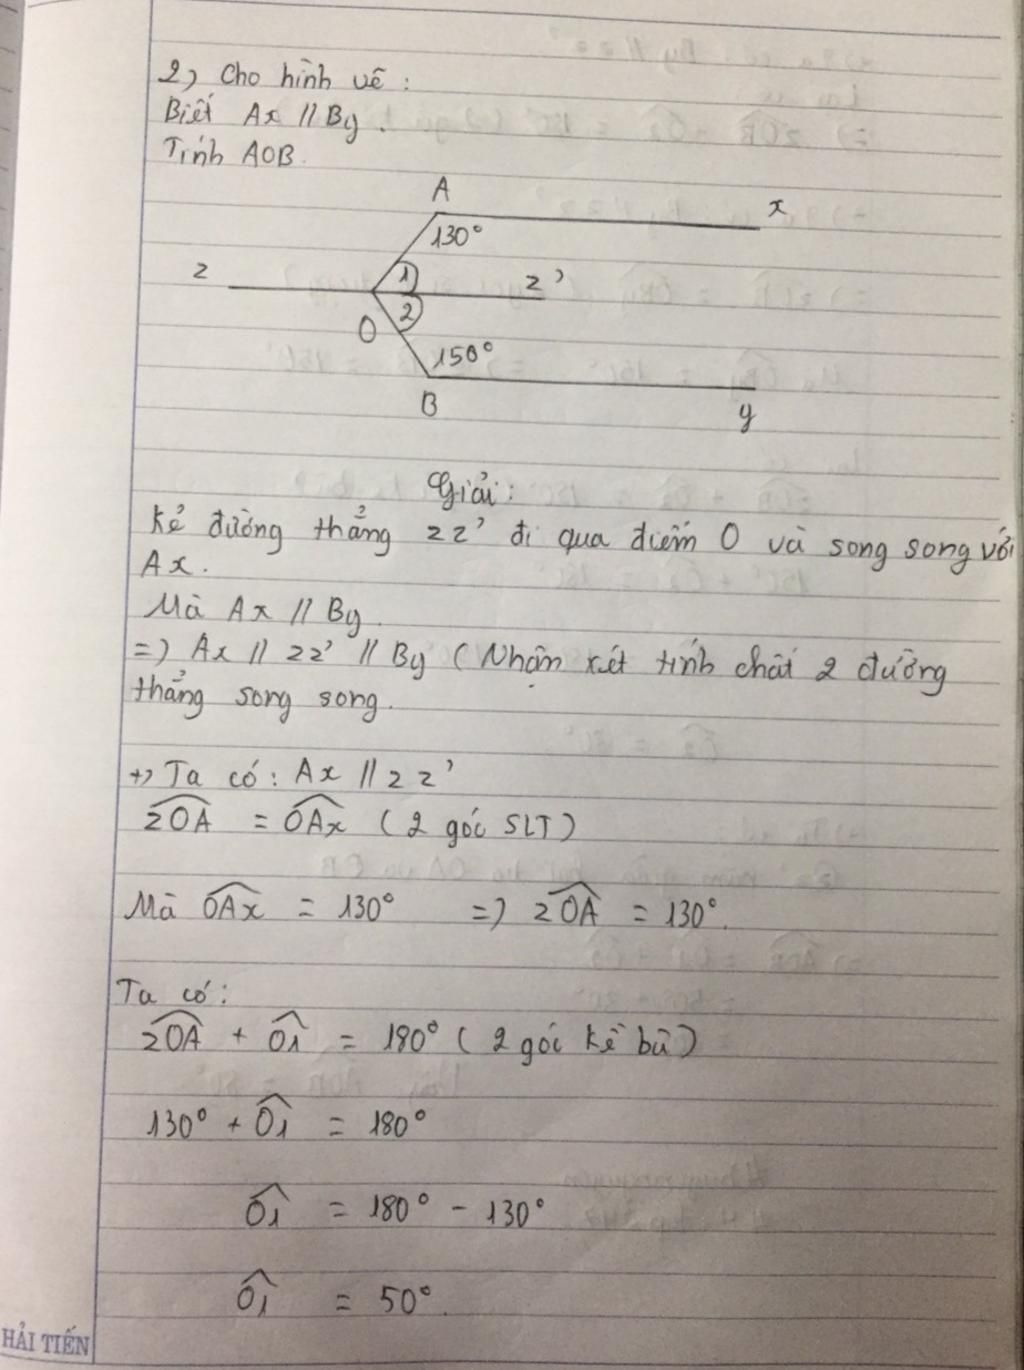 2) Cho hình vẽ :
Biết Ax // By .
Tính AOB.
A
x
130°
z
1
z'
2
O
150°
B
y
Giải :
Kẻ đường thẳng zz' đi qua điểm O và song song với
Ax.
Mà Ax // By.
=) Ax // zz' // By ( Nhận xét tính chất 2 đường
thẳng song song.
+) Ta có : Ax // zz'
zOA = OAx ( 2 góc SLT )
Mà OAx = 130° =) zOA = 130°.
Ta có :
zOA + O1 = 180° ( 2 góc kề bù )
130° + O1 = 180°
O1 = 180° - 130°
O1 = 50°.
HẢI TIẾN